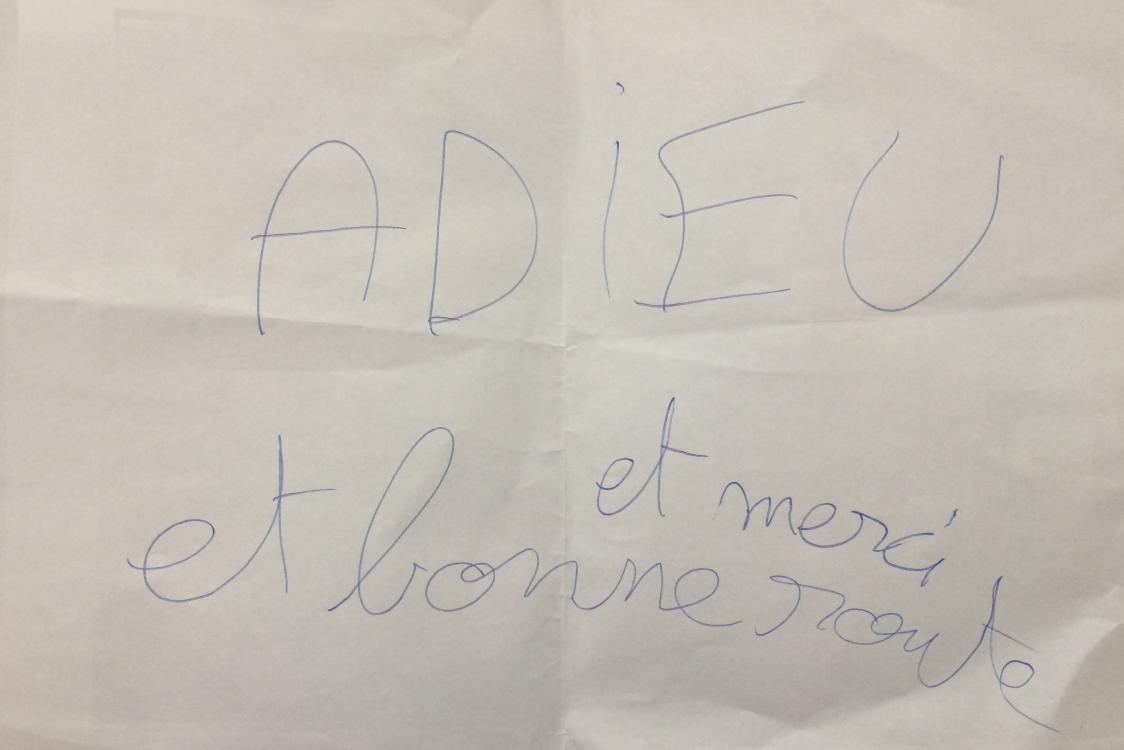 ADiEU
et merci
et bonne route